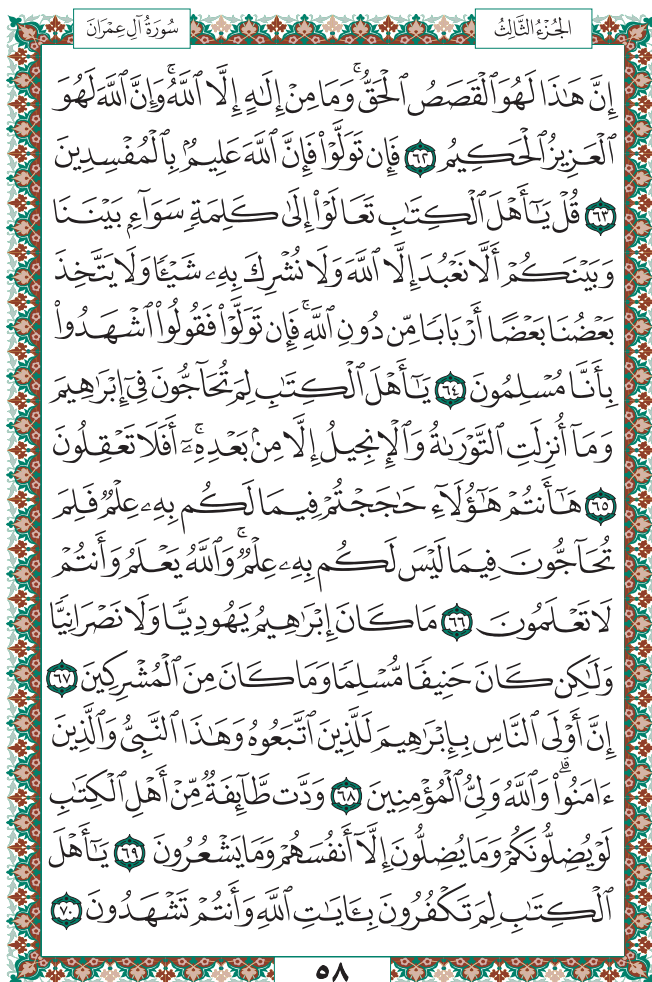 سُورَةُ آلِ عِمْرَان
الجُزْءُ الثَّالِثُ
إِنَّ هَٰذَا لَهُوَ ٱلْقَصَصُ ٱلْحَقُّ ۚ وَمَا مِنْ إِلَٰهٍ إِلَّا ٱللَّهُ ۚ وَإِنَّ ٱللَّهَ لَهُوَ
ٱلْعَزِيزُ ٱلْحَكِيمُ ٦٢ فَإِن تَوَلَّوْا۟ فَإِنَّ ٱللَّهَ عَلِيمٌۢ بِٱلْمُفْسِدِينَ
٦٣ قُلْ يَٰٓأَهْلَ ٱلْكِتَٰبِ تَعَالَوْا۟ إِلَىٰ كَلِمَةٍ سَوَآءٍۭ بَيْنَنَا
وَبَيْنَكُمْ أَلَّا نَعْبُدَ إِلَّا ٱللَّهَ وَلَا نُشْرِكَ بِهِۦ شَيْـًٔا وَلَا يَتَّخِذَ
بَعْضُنَا بَعْضًا أَرْبَابًا مِّن دُونِ ٱللَّهِ ۚ فَإِن تَوَلَّوْا۟ فَقُولُوا۟ ٱشْهَدُوا۟
بِأَنَّا مُسْلِمُونَ ٦٤ يَٰٓأَهْلَ ٱلْكِتَٰبِ لِمَ تُحَآجُّونَ فِىٓ إِبْرَٰهِيمَ
وَمَآ أُنزِلَتِ ٱلتَّوْرَىٰةُ وَٱلْإِنجِيلُ إِلَّا مِنۢ بَعْدِهِۦٓ ۚ أَفَلَا تَعْقِلُونَ
٦٥ هَٰٓأَنتُمْ هَٰٓؤُلَآءِ حَٰجَجْتُمْ فِيمَا لَكُم بِهِۦ عِلْمٌ فَلِمَ
تُحَآجُّونَ فِيمَا لَيْسَ لَكُم بِهِۦ عِلْمٌ ۚ وَٱللَّهُ يَعْلَمُ وَأَنتُمْ
لَا تَعْلَمُونَ ٦٦ مَا كَانَ إِبْرَٰهِيمُ يَهُودِيًّا وَلَا نَصْرَانِيًّا
وَلَٰكِن كَانَ حَنِيفًا مُّسْلِمًا وَمَا كَانَ مِنَ ٱلْمُشْرِكِينَ ٦٧
إِنَّ أَوْلَى ٱلنَّاسِ بِإِبْرَٰهِيمَ لَلَّذِينَ ٱتَّبَعُوهُ وَهَٰذَا ٱلنَّبِىُّ وَٱلَّذِينَ
ءَامَنُوا۟ ۗ وَٱللَّهُ وَلِىُّ ٱلْمُؤْمِنِينَ ٦٨ وَدَّت طَّآئِفَةٌ مِّنْ أَهْلِ ٱلْكِتَٰبِ
لَوْ يُضِلُّونَكُمْ وَمَا يُضِلُّونَ إِلَّآ أَنفُسَهُمْ وَمَا يَشْعُرُونَ ٦٩ يَٰٓأَهْلَ
ٱلْكِتَٰبِ لِمَ تَكْفُرُونَ بِـَٔايَٰتِ ٱللَّهِ وَأَنتُمْ تَشْهَدُونَ ٧٠
٥٨